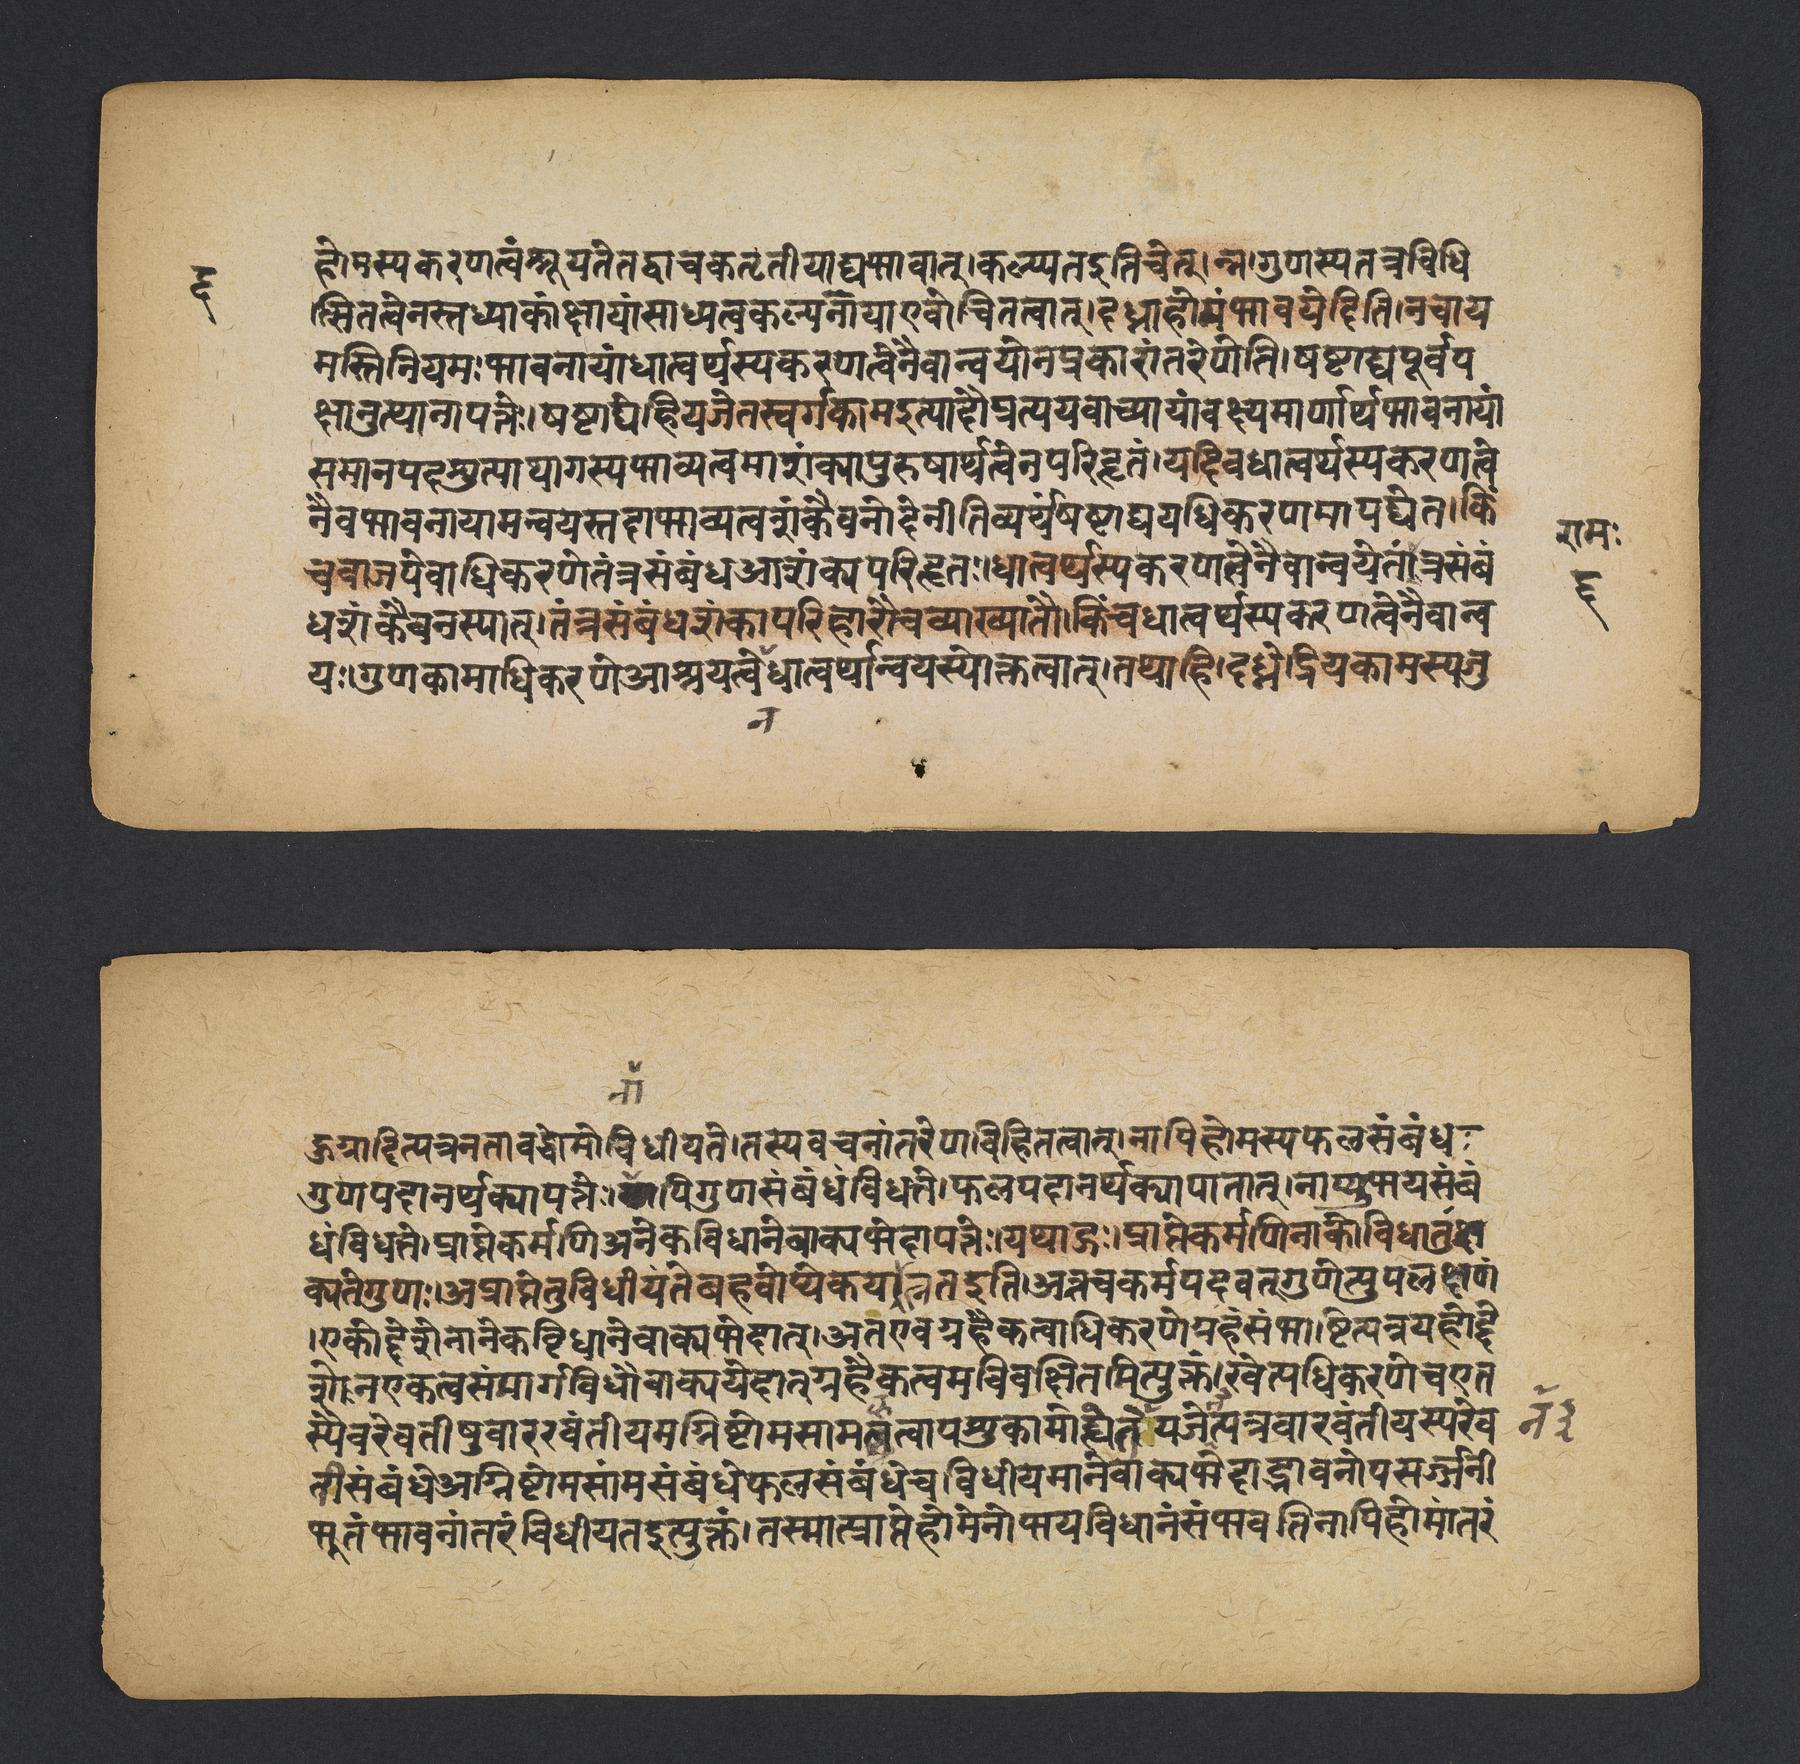 ६
होमस्यकरणत्वंश्रूयतेतद्वाचकतृतीयाद्यभावात्।कल्प्यतइतिचेत्।न्न।गुणस्यतत्रविधि
त्सितत्वेनस्तध्याकांक्षायांसाध्यत्वकल्पनायाएवोचितत्वात्।दध्नाहोमंभावयेदिति।नचाय
मस्तिनियमःभावनायांधात्वर्थस्यकरणत्वेनैवान्वयोनप्रकारांतरेणेति।षष्टाद्यपूर्वप
क्षानुत्थानापत्तेः।षष्टाद्येहियजेतस्वर्गकामइत्यादौप्रत्ययवाच्यायांवक्ष्यमाणार्थभावनायां
समानपदश्रुत्यायागस्यभाव्यत्वमाशंक्यापुरुषार्थत्वेनपरिहृतं।यदिवधात्वर्थस्यकरणत्वे
नैवभावनायामन्वयस्तदाभाव्यत्वशंकैवनोदेतीतिव्यर्थंषष्टाद्ययधिकरणमापद्येत।किं
चवाजपेयाधिकरणेतंत्रसंबंधआशंक्यपरिहृतः।धात्वर्थस्यकरणत्वेनैवान्वयेतंत्रसंबं
धशंकैवनस्यात्।तंत्रसंबंधशंकापरिहारौचव्याख्यातौ।किंचधात्वर्थस्यकरणत्वेनैवान्व
यः।गुणकामाधिकरणेआश्रयत्वेधात्वर्थान्वयस्योक्तत्वात्।तथाहि।दध्नेंद्रियकामस्यजु
न
रामः
६
ना
हुयादित्यत्रनतावद्धोमोविधीयते।तस्यवचनांतरेणविहितत्वात्।नापिहोमस्यफलसंबंधः
गुणपदानर्थक्यापत्तेः।पिगुणसंबंधंविधत्ते।फलपदानर्थक्यापातात्।नाप्युभयसंबं
धंविधत्ते।प्राप्तेकर्मणिअनेकविधानेवाक्यभेदापत्तेः।यथाहुः।प्राप्तेकर्मणिनाकोविधातुंश
क्यतेगुणः।अप्राप्तेतुविधीयंतेबहवोप्येकयत्नतइति।अत्रचकर्मपदवत्गुणेत्युपलक्षणं
।एकोद्देशेनानेकविधानेवाक्यभेदात्।अतएवग्रहैकत्वाधिकरणेग्रहंसंमार्ष्टित्यत्रग्रहोद्दे
शेनएकत्वसंमार्गविधौवाक्यभेदात्ग्रहैकत्वमविवक्षितमित्युक्तं।रेवत्यधिकरणेचएत
स्यैवरेवतीषुवाररवंतीयमग्निष्टोमसामकृत्वापशुकामोह्येतेयजेत्यत्रवारवंतीयस्यरेव
तीसंबंधेअग्निष्टोमसामसंबंधेफलसंबंधेचविधीयमानेवाक्यभेदाद्भावनोपसर्ज्जनी
भूतंभावनांतरंविधीयतइत्युक्तं।तस्मात्प्राप्तेहोमेनोभयविधानंसंभवतिनापिहोमांतरं
न ३